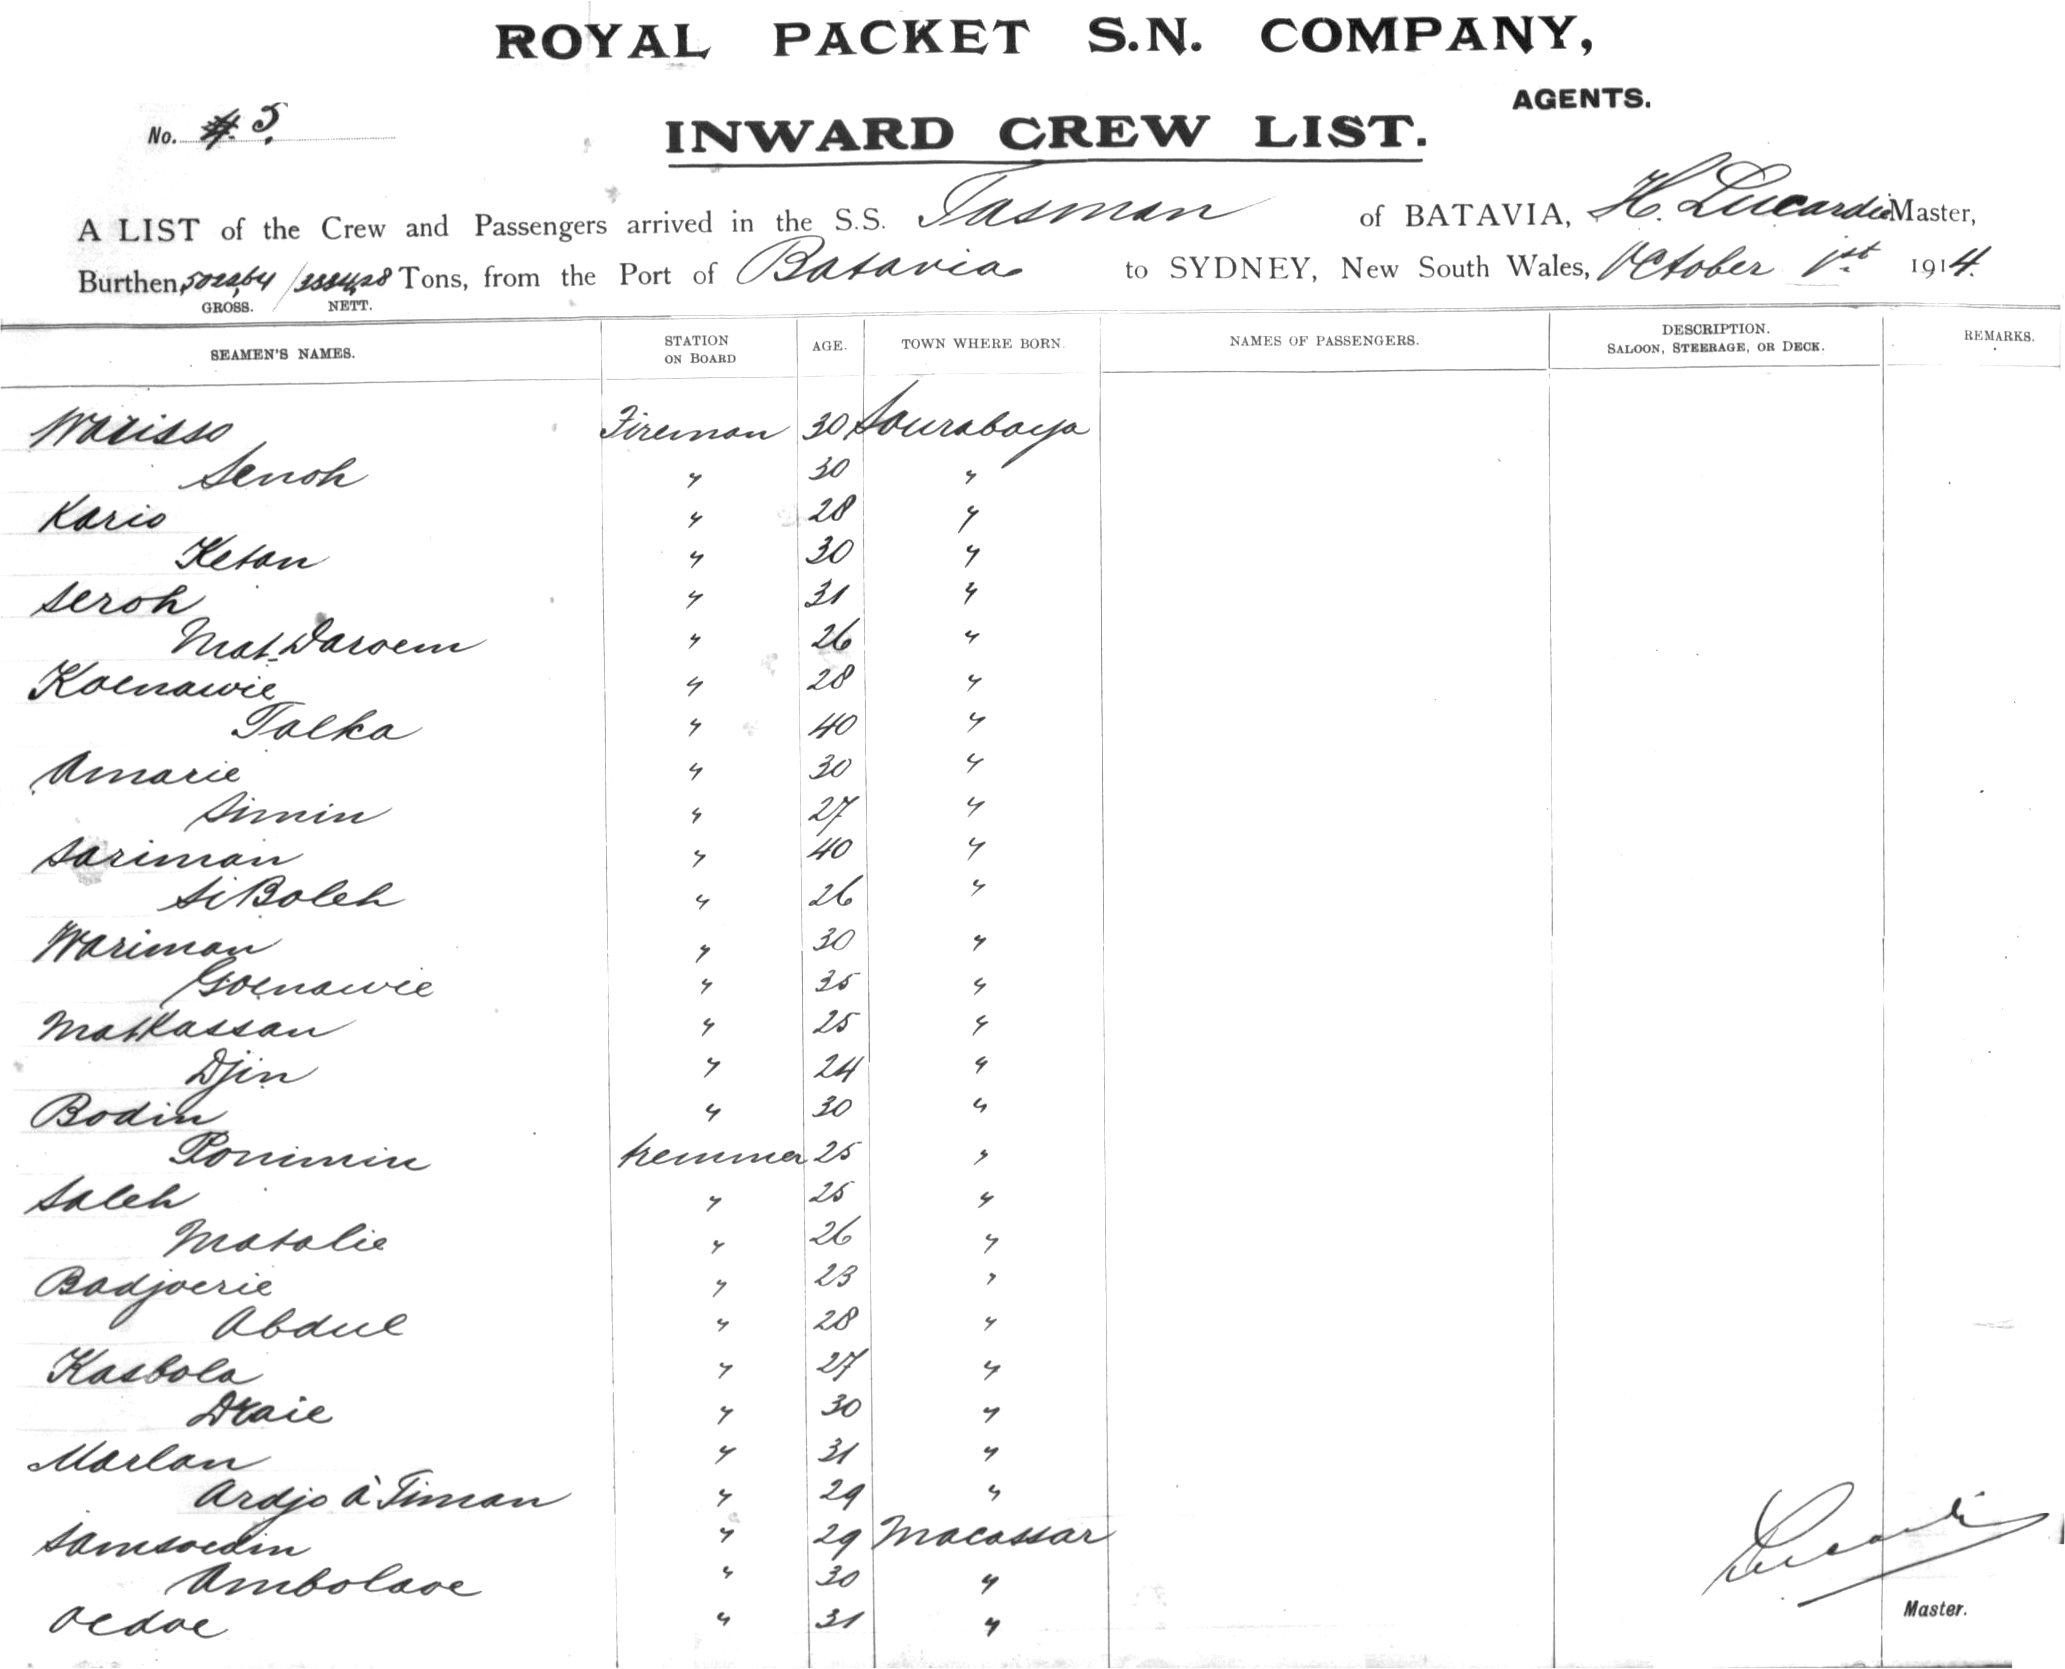 ROYAL PACKET S.N. COMPANY,
AGENTS.
No. 5.
INWARD CREW LIST.
A LIST of the Crew and Passengers arrived in the S.S. Tasman of BATAVIA, H. Lucardie Master,
Burthen, Tons, from the Port of Batavia to SYDNEY, New South Wales, October 1st 1914.
GROSS. NETT.
SEAMEN'S NAMES. STATION ON BOARD AGE. TOWN WHERE BORN. NAMES OF PASSENGERS. DESCRIPTION. SALOON, STEERAGE, OR DECK. REMARKS.
Warisso Fireman 30 Sourabaya
Senoh " 30 "
Kario " 28 "
Ketan " 30 "
Seroh " 31 "
Mat Daroem " 26 "
Koenawie " 28 "
Talka " 40 "
Amarie " 30 "
Simin " 27 "
Sariman " 40 "
Si Boleh " 26 "
Wariman " 30 "
Goenawie " 35 "
Matkassan " 25 "
Djin " 24 "
Bodin " 30 "
Ponimin tremmer 25 "
Saleh " 25 "
Matalie " 26 "
Badjoerie " 23 "
Abdul " 28 "
Kasbola " 27 "
Draie " 30 "
Marlan " 31 "
Ardjo à Timan " 29 "
Samsoedin " 29 Macassar
Ambolaoe " 30 "
Oedoe " 31 "
Lucardie
Master.